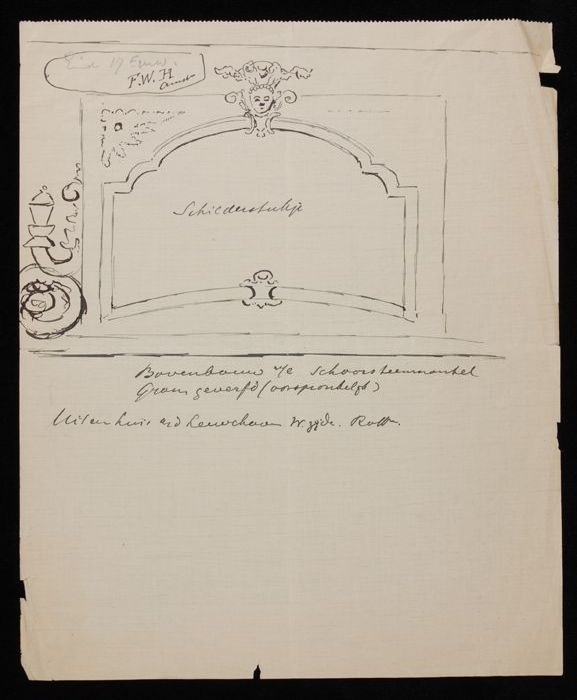 Eind 17 Eeuw.
F.W.H
Schilderstukje
Bovenbouw v/e Schoorsteenmantel
Groen geverfd (oorspronkelijk)
Uit een huis a/d Leuvehaven W. zijde. Rott.